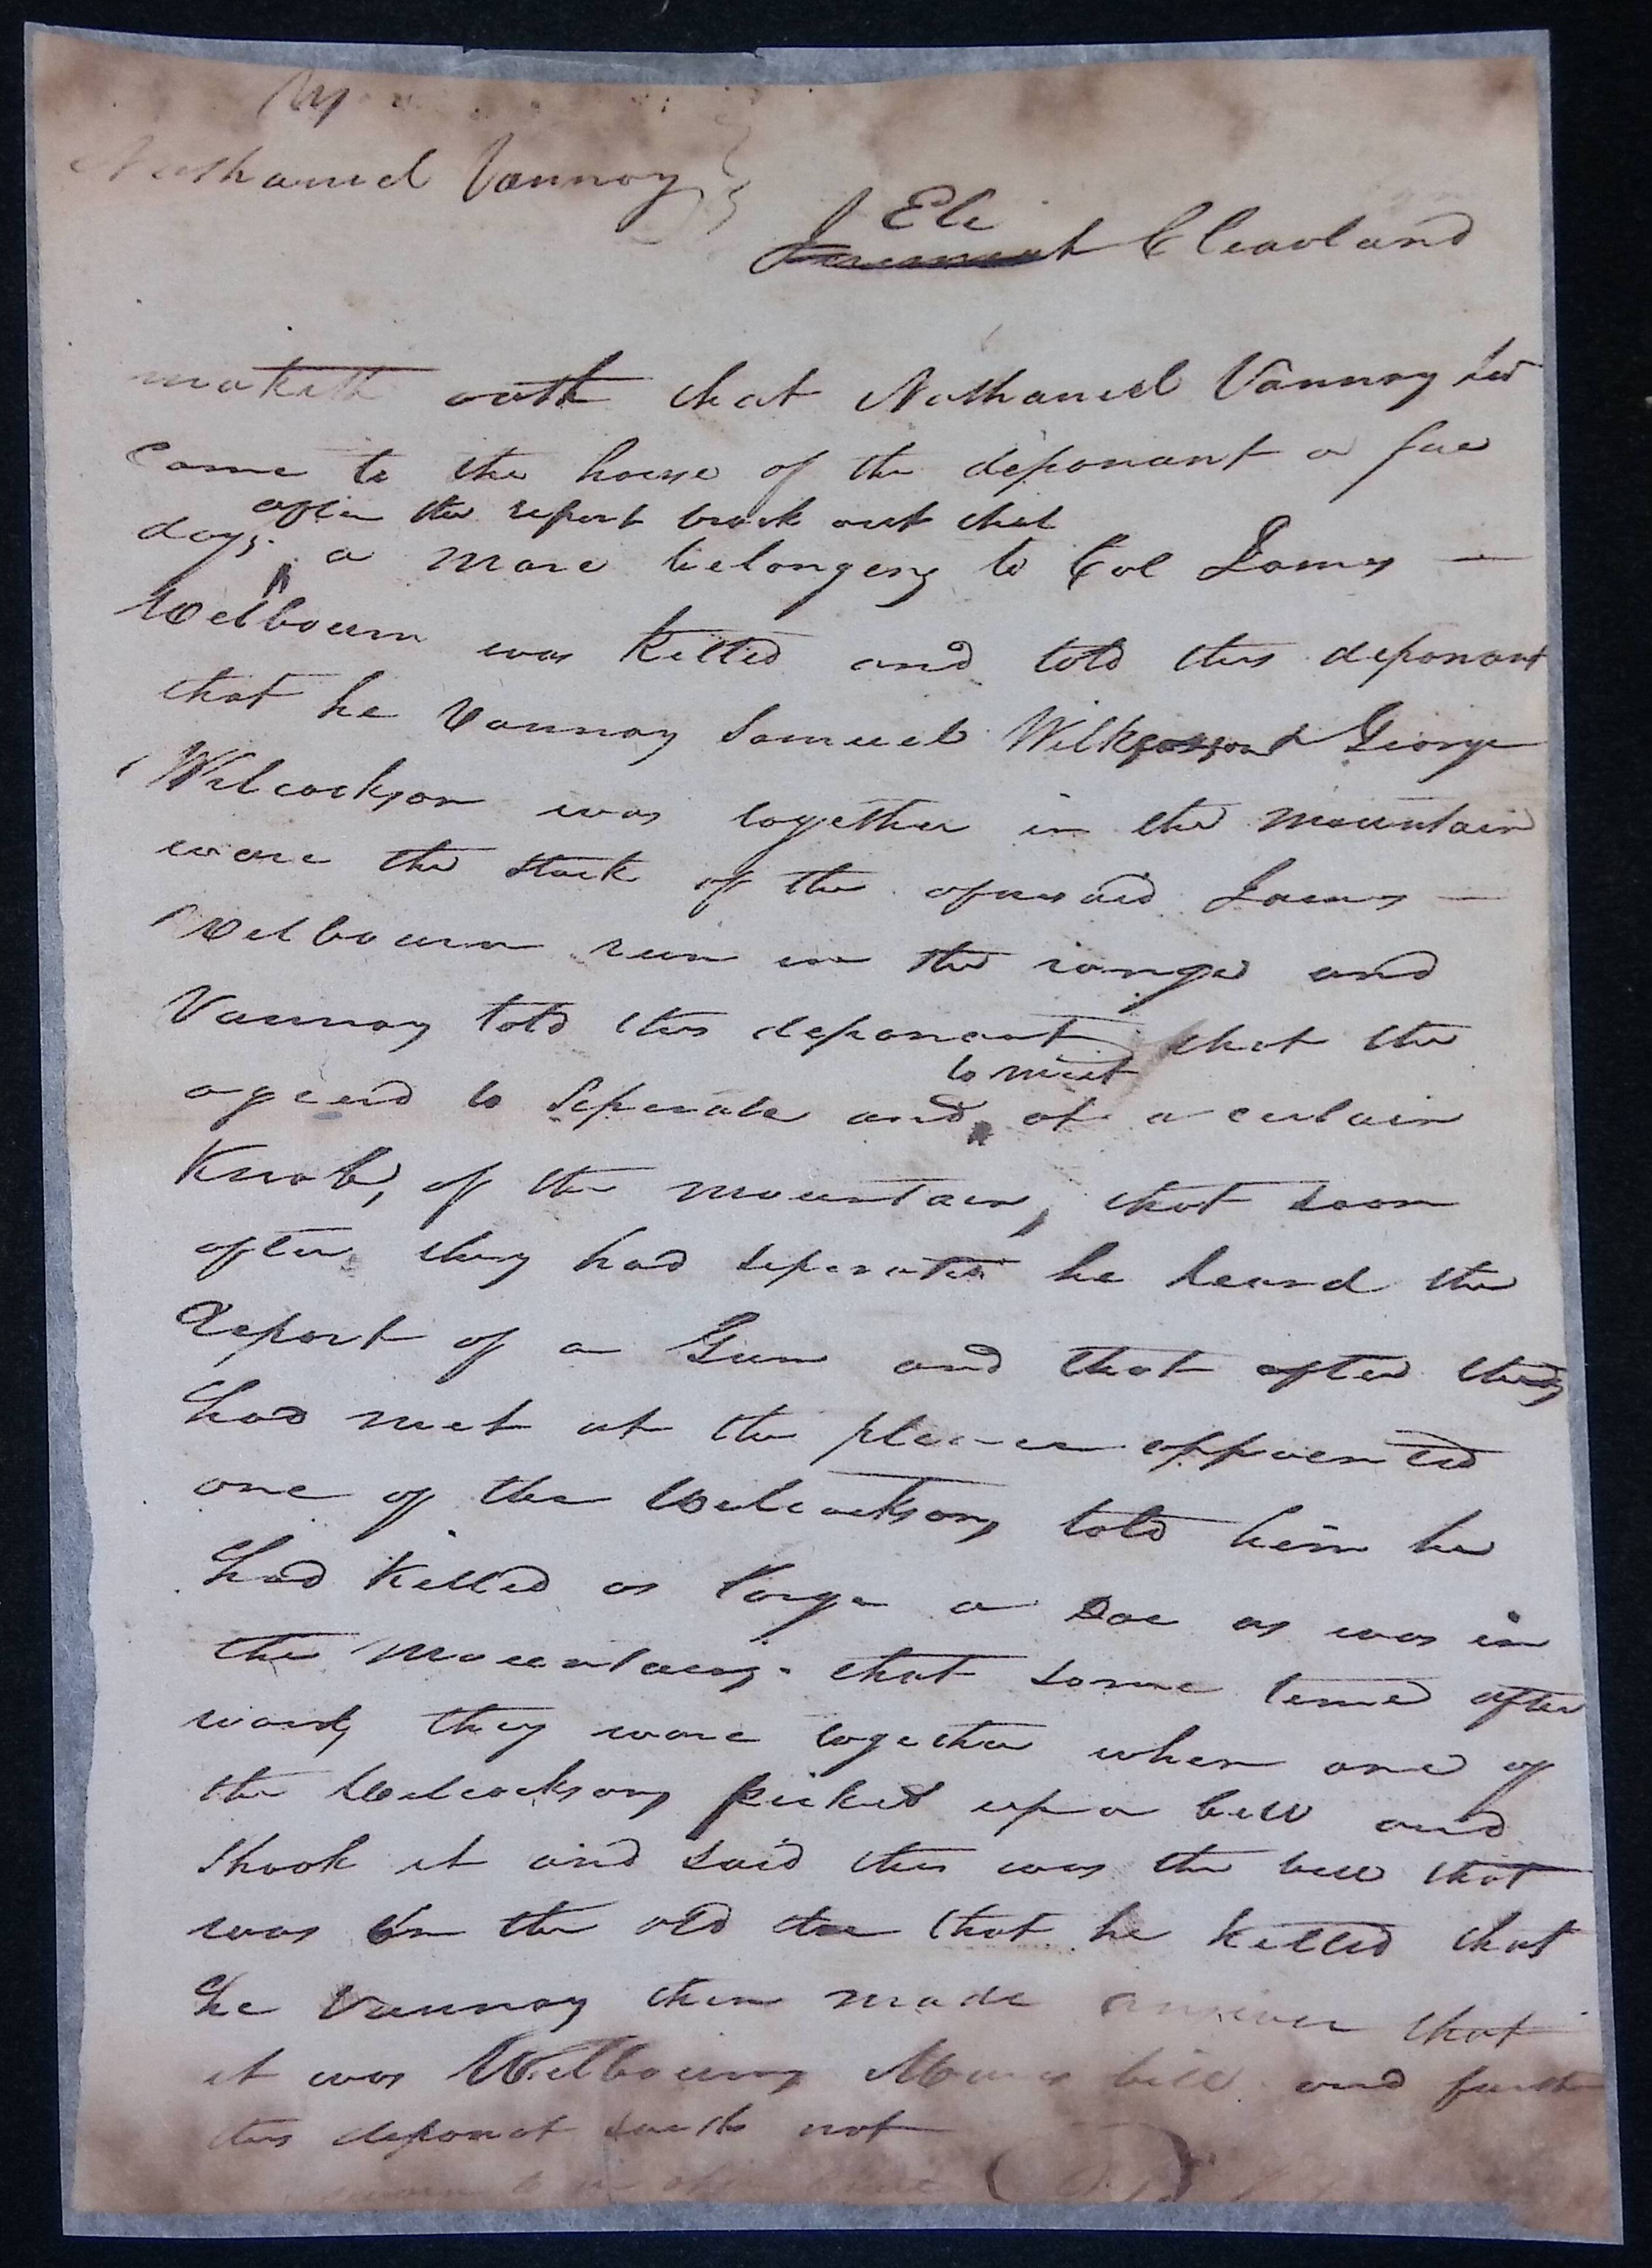 Nathaniel Vannoy
Eli
Jeremiah Cleavland
maketh oath that Nathaniel Vannoy did
Come to the house of the deponant a few
after the report brock out that
days a mare belongeng to Col James —
Welbourn was Killed and told this deponant
that he Vannoy Samuel George
Wilcockson was together in the mountain
ware the stock of the afoursaid James —
Welbourn run in the range and
Vannoy told this deponant that the
to meet
agreed to Seperate and at a certain
Knob, of the mountain, that soon
after they had seperated he heard the
Report of a Gun and that after they
had meet at the place appointed
one of the Welcocksons told him he
had Killed as large a Doe as was in
the Mountains. that some time after
wards they ware together when one of
the Welcocksons picked up a bell and
Shook it and said this was the bell that
was on the old doe that he killed that
he Vannoy then made answer that
it was Welbourns Mares bell and further
this deponat saieth not